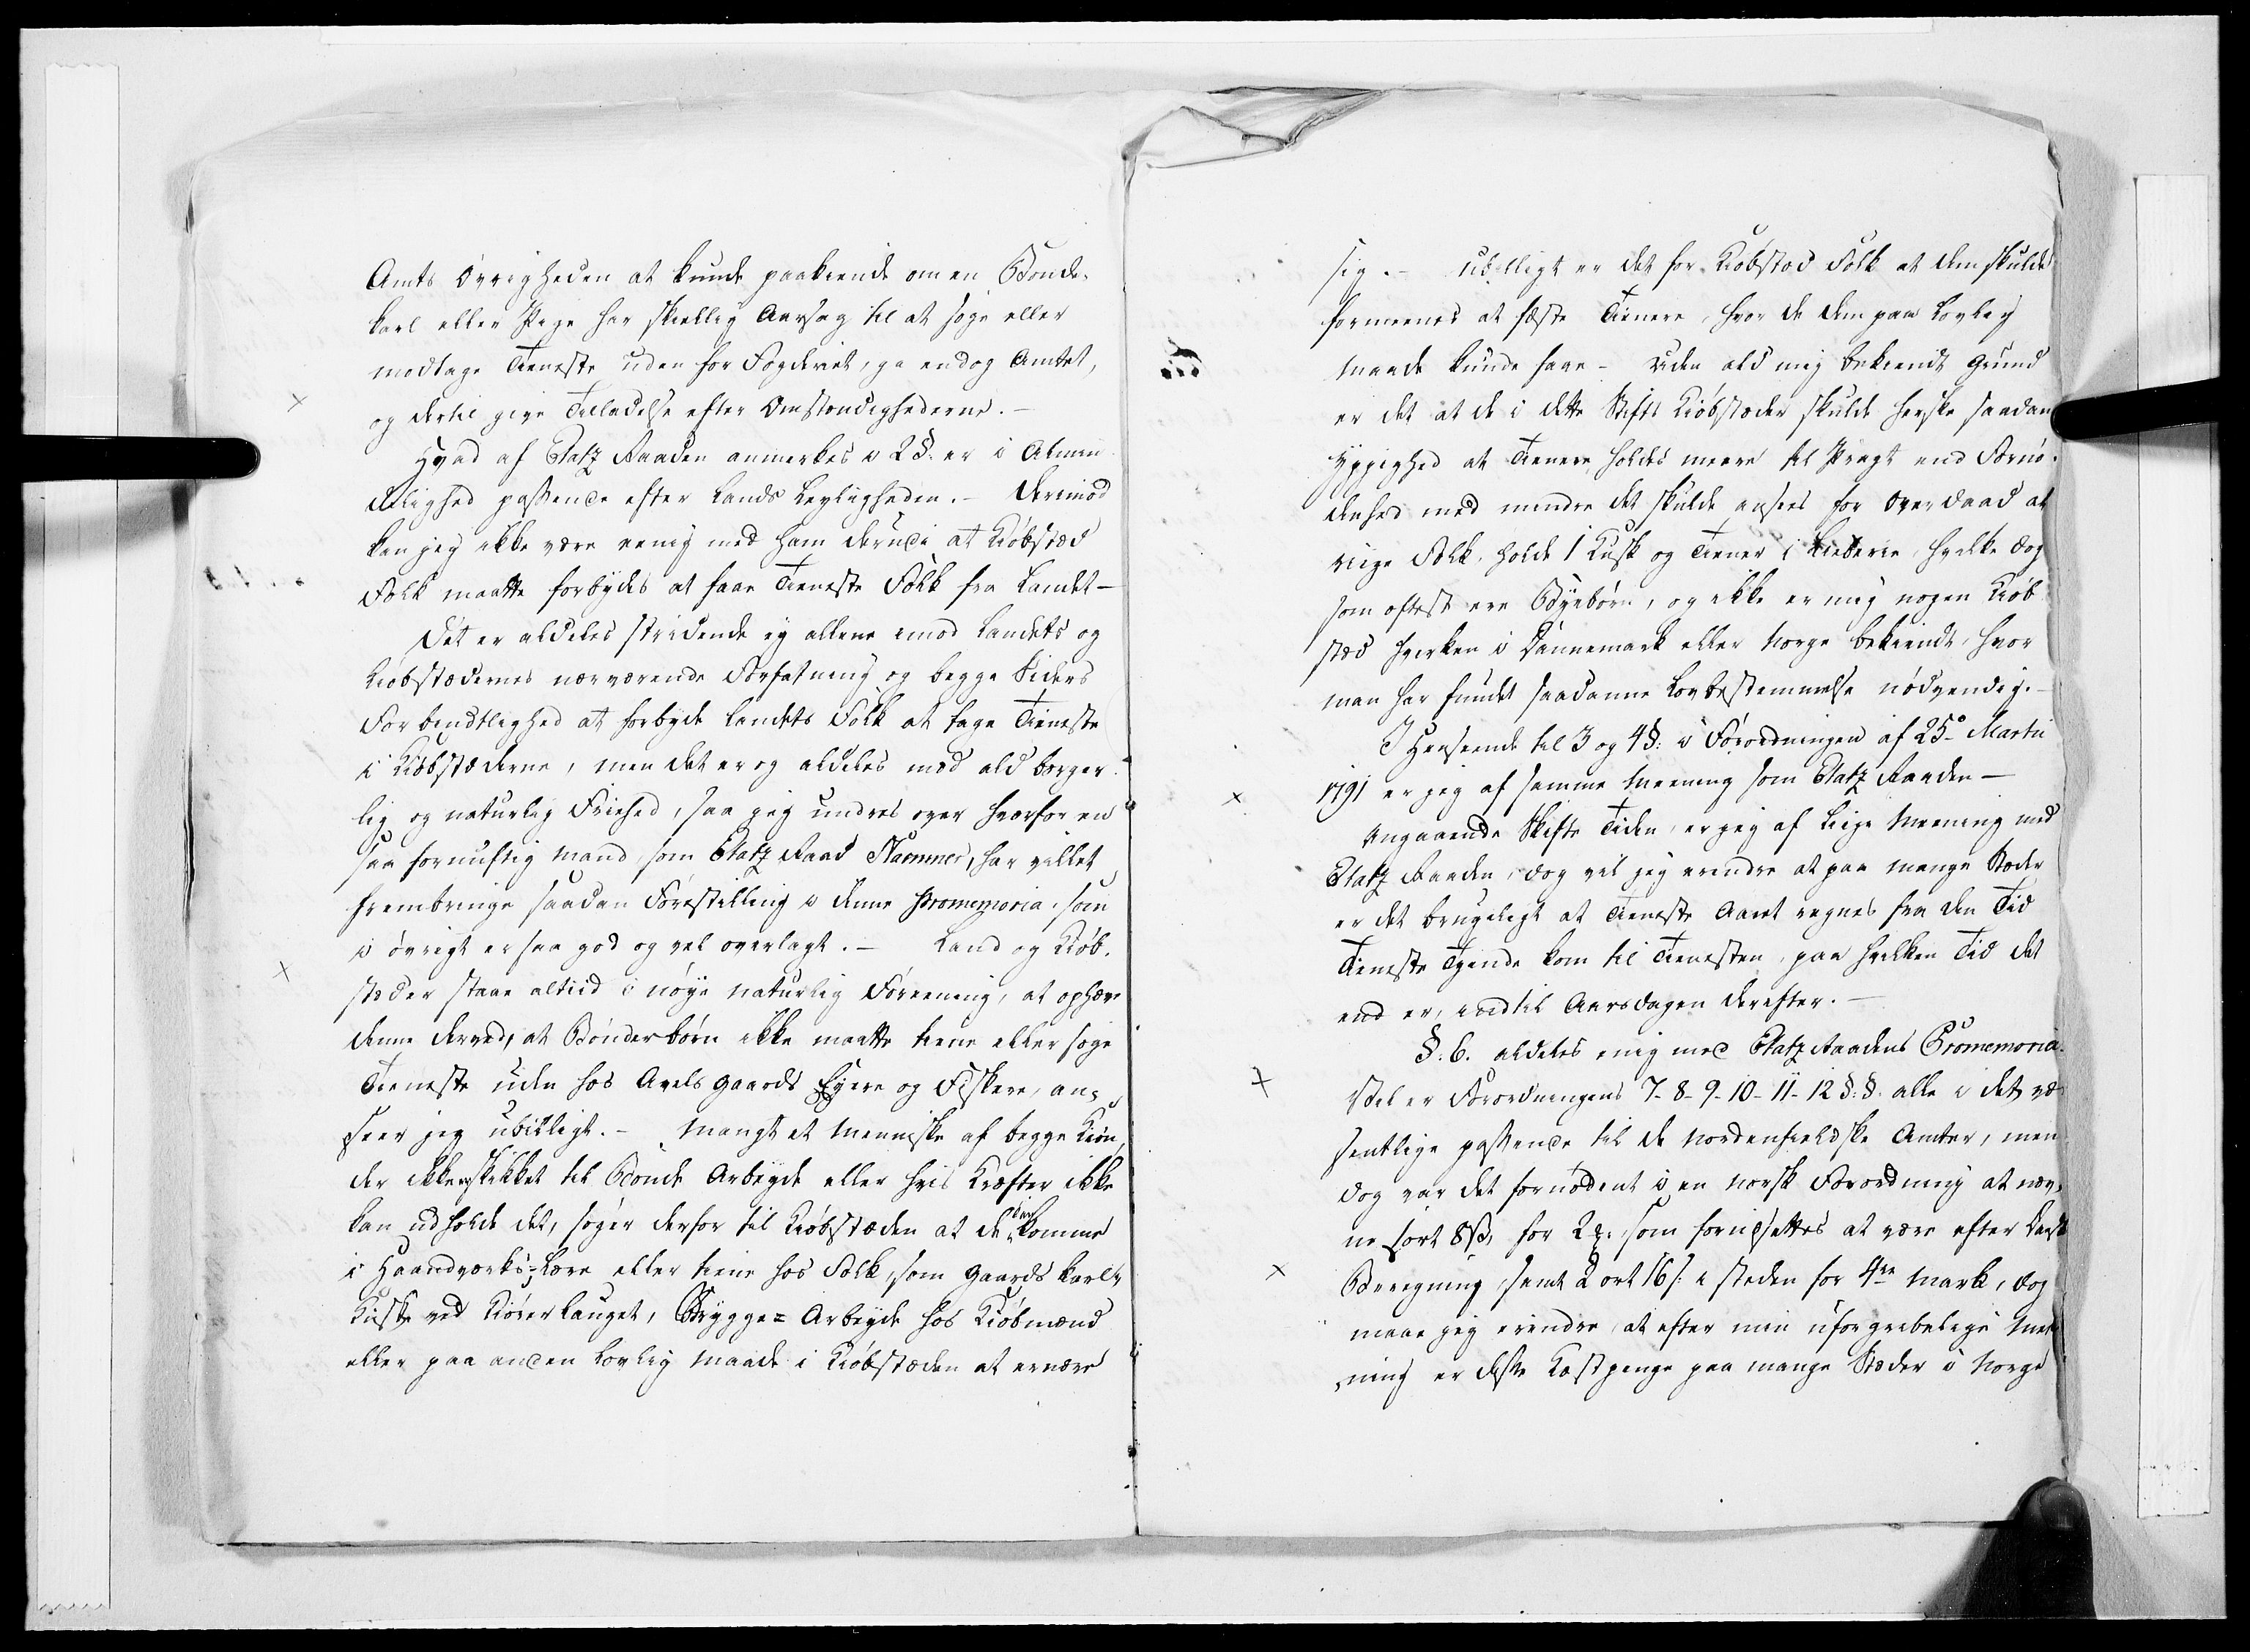 Amts Øvrigheden at kunde paakiende om en Bonde-
karl eller Pige har skiellig Aarsag til at søge eller
modtage Tieneste uden for Fogderiet, ja endog Amtet,
og dertil give Tilladelse efter Omstændighederne. -
Hvad af Etatz Raaden anmerkes v 2 §. er i Almin-
delighed passende efter Lands Leyligheden. - Derimod
kan jeg ikke være eenig med ham derudi at Kiøbstæd
Folk maatte forbydes at faae Tieneste Folk fra Landet -
Det er aldeles stridende ey allene imod Landets og
Kiøbstædernes nærværende Forfatning og begge Siders
Forbindtlighed at forbyde Landets Folk at tage Tieneste
i Kiøbstæderne, men det er og aldeles mod ald borger-
lig og naturlig Friehed, saa jeg undres over hvorfor en
saa fornuftig Mand som Etatz Raad Hammer, har villet
frembringe saadan Forestilling i denne Promemoria, som
i øvrigt er saa god og vel overlagt. - Land og Kiøb-
stæder staae altiid i nøye naturlig Foreening, at ophæve
denne derved, at Bønderbørn ikke maatte tiene eller søge
Tieneste uden hos Avels gaards Eyere og Fiskere, an-
seer jeg ubilligt. - Mangt et Menniske af begge Kiøn,
der ikke er skikket til Bonde Arbeyde eller hvis Kræfter ikke
kan udholde det, søger derfor til Kiøbstæden at de kan komme
i Haandværks-Lære eller tiene hos Folk, som Gaards Karle
Kuske ved Kiørerlauget, Brygge- Arbeyde hos Kiøbmænd
eller paa anden lovlig Maade i Kiøbstæden at ernære
sig. - Ubilligt er det for Kiøbstæd Folk at dem skulde
formeenes at fæste Tienere, hvor de dem paa lovlig
Maade kunde faae - Uden ald mig bekiendt Grund
er det at de i dette Stifts Kiøbstæder skulde herske saadan
Yppighed at Tienere holdes meere til Pragt end Fornø-
denhed med mindre det skulde ansees for Overdaad at
riige Folk holde 1 Kusk og Tiener i Lieberie, hvilke dog
som oftest ere Byebørn, og ikke er mig nogen Kiøb-
stæd hverken i Dannemark eller Norge bekiendt, hvor
man har fundet saadanne Lovbestemmelse nødvendig. -
I Henseende til 3 og 4 §: i Forordningen af 25de Martii
1791 er jeg af samme Meening som Etatz Raaden -
Angaaende Skifte Tiden, er jeg af liige Meening med
Etatz Raaden, dog vil jeg erindre at paa mange Stæder
er det brugeligt at Tieneste Aaret regnes fra den Tid
Tieneste Tyende kom til Tienesten, paa hvilken Tid det
end er, indtil Aarsdagen derefter. -
§. 6. aldeles enig med Etatz Raadens Promemoria.
Vel er Forordningens 7-8-9-10-11-12 §.§. alle i det væ-
sentlige passende til de nordenfieldske Amter, men
dog var det fornødent i en norsk Forordning at næv-
ne ort 8 ß, for 2 som forudsættes at være efter Lands
Beregning, samt 2 ort 16 ß i steden for 4re Mark, dog
maae jeg erindre, at efter min uforgribelige Mee-
ning er disse Kostpenge paa mange Stæder i Norge